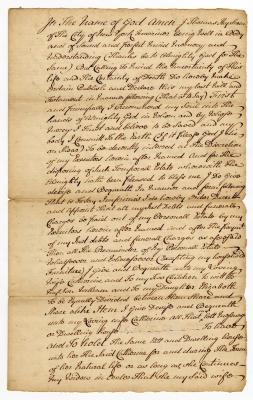 In The Name of God Amen I Thomas
of The City of New York being well in Body
and of Sound and perfect mind memory and
Understanding (Thanks be to Almighty God for The
Same) But Calling to mind the uncertainty of this
life and The Certainty of Death Do hereby make
Ordain Publish and Declare this my last will and
Testament in manner following (That is to Say) First
and principally I recommend my Soul into The
hands of Almighty God in whom and by whose
mercy I trust and believe to be Saved and my
body I Commit to the Earth
To be decently interred at The Discretion
of my Executors herein after Named And for the
disposing of Such Temporal Estate wherewith The
Almighty hath been pleased to bless me I Do Give
devise and Bequeath in manner and form following
That is to Say Imprimis I do hereby order Direct
and Appoint That all my Just Debts and funeral
Charges be paid out of my Personall Estate by my
Executors herein after named and after The payment
of my Just debts and funeral Charges as aforesaid
Then all The Remainder of my Personal Estate
Whatsoever and Wheresoever (Excepting my household
Furniture) I give and Bequeath unto my Loving
wife Catherine and To my Two Children To wit To
my Son William and To my Daughter Elizabeth
To be Equally Divided between them Share and
Share alike Item I Give Devise and Bequeath
unto my Loving wife Catherine all That
or Dwelling house To have
and To hold The Same Lott and Dwelling house
unto her the Said Catherine for and during The Term
of her Natural life or as long as She Continues
my Widow in Order That She my Said wife